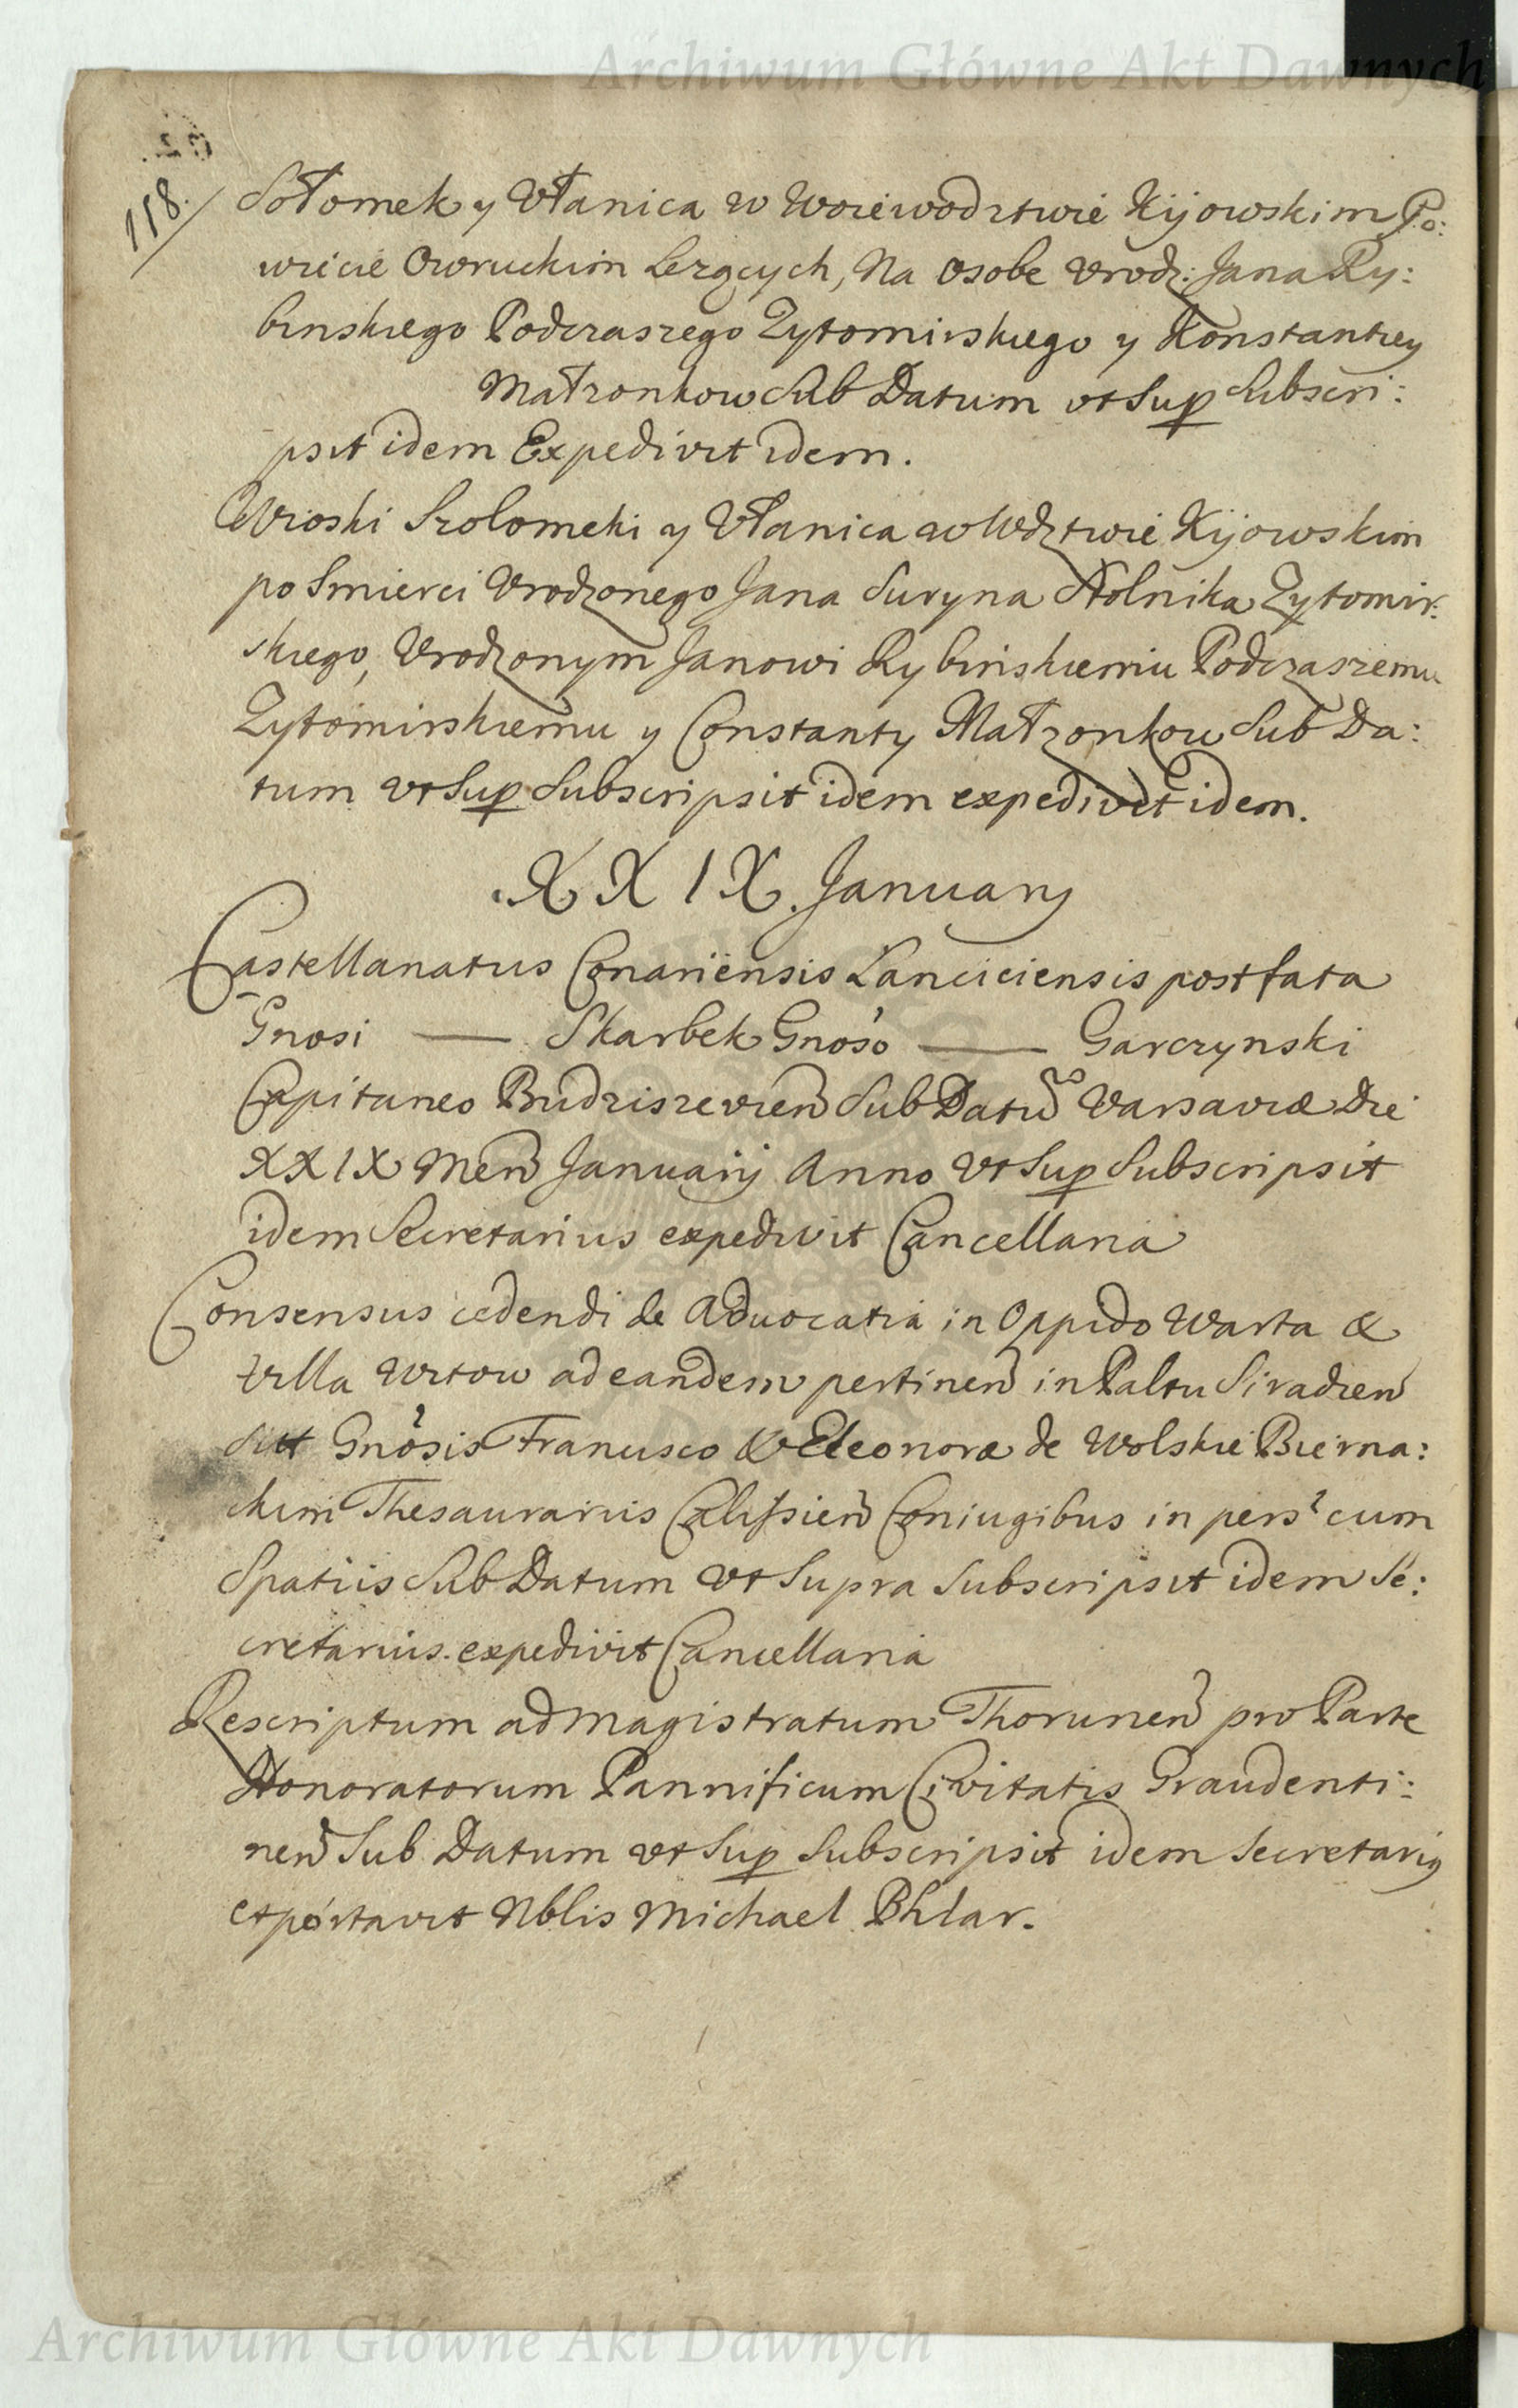 Archiwum Główne Akt Dawnych
118.
Sołomek y Vłanica w Woiewodztwie Kijowskim Po:
wiecie Owruckim Lezących, Na Osobe Vrodz: Jana Ry:
binskiego Podczaszego Zytomirskiego y Konstantiey
Małzonkow Sub Datum vt Sup Subscri:
psit idem Expedivit idem.
Wioski Szolomeki y Vłanica w Wdztwie Kijowskim
po Smierci Vrodzonego Jana Suryna Stolnika Zytomir:
skiego, Vrodzonym Janowi Rybinskiemu Podczaszemu
Zytomirskiemu y Constanty Małzonkow Sub Da:
tum vt Sup Subscripsit idem expedivit idem.
XXIX. Januarij
Castellanatus Conariensis Lanciciensis post fata
Gnosi — Skarbek Gnoso — Garczynski
Capitaneo Budziszevien Sub Datu Varsaviæ Die
XXIX Men Januarij Anno Vt Sup Subscripsit
idem Secretarius expedivit Cancellaria
Consensus cedendi de Advocatia in Oppido Warta &
Villa Witow ad eandem pertinen in Paltu Siradien
sitt Gnosis Francisco & Eleonora de Wolskie Bierna:
ckim Thesaurariis Calissien Coniugibus in pers cum
Spatiis Sub Datum Vt Supra Subscripsit idem Se:
cretarius expedivit Cancellaria
Rescriptum ad Magistratum Thorunen pro Parte
Honoratorum Pannificum Civitatis Graudenti:
nen Sub Datum vt Sup Subscripsit idem Secretariq
exportavit Nblis Michael Phlar.
Archiwum Główne Akt Dawnych